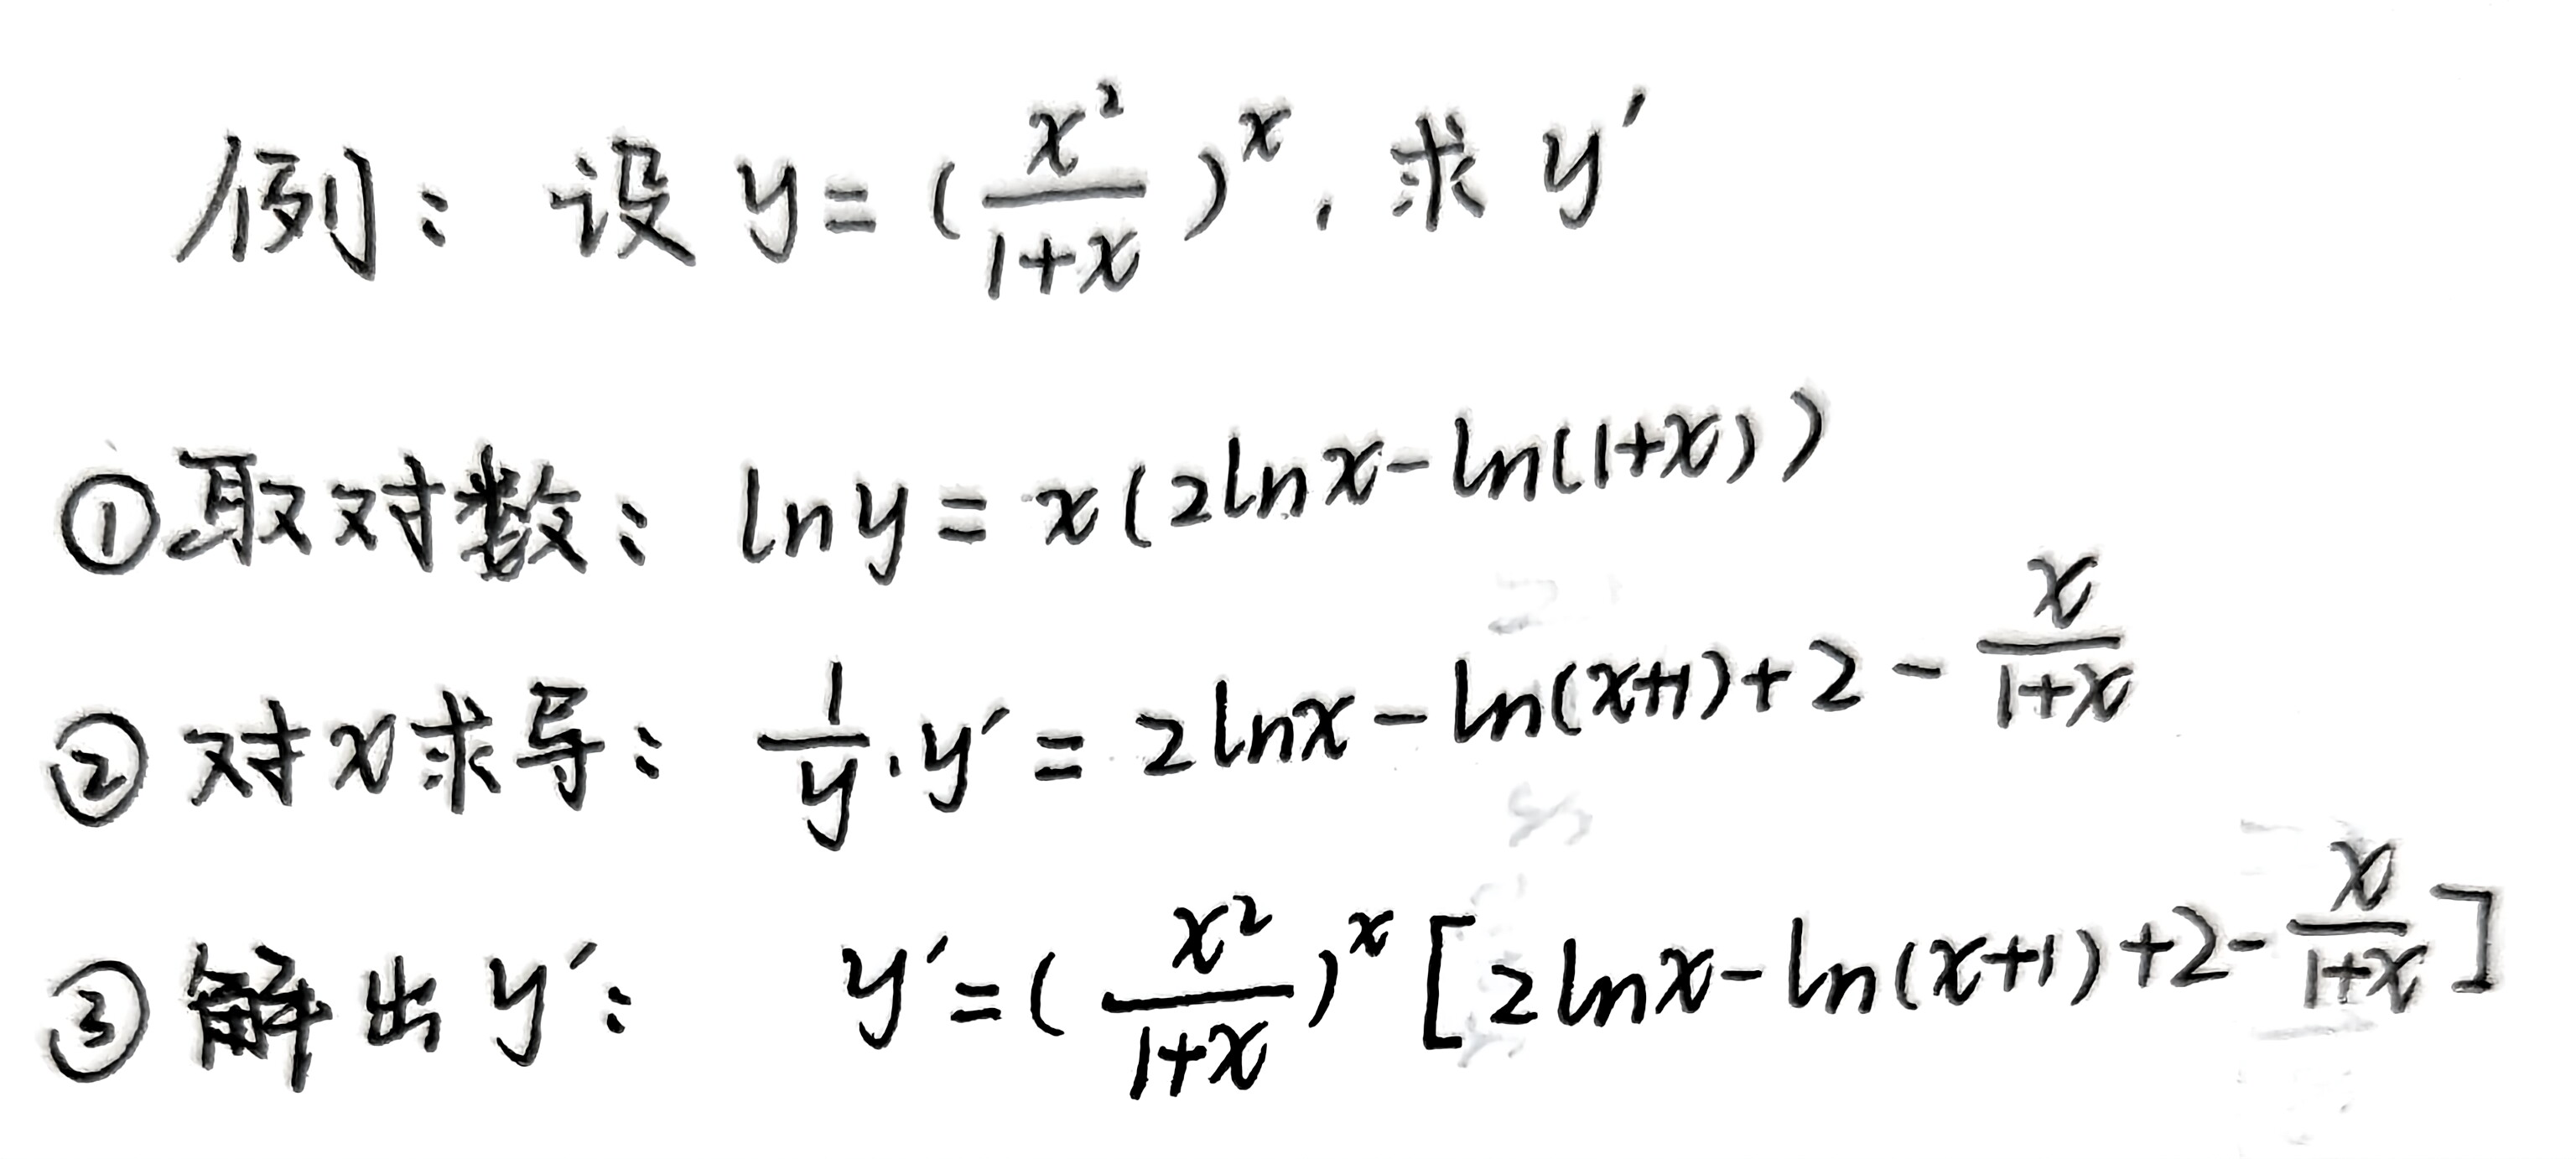 例：设 y=(x²/(1+x))^x，求 y′
①取对数：lny=x(2lnx-ln(1+x))
②对x求导：1/y·y′=2lnx-ln(x+1)+2-x/(1+x)
③解出y′：y′=(x²/(1+x))^x[2lnx-ln(x+1)+2-x/(1+x)]